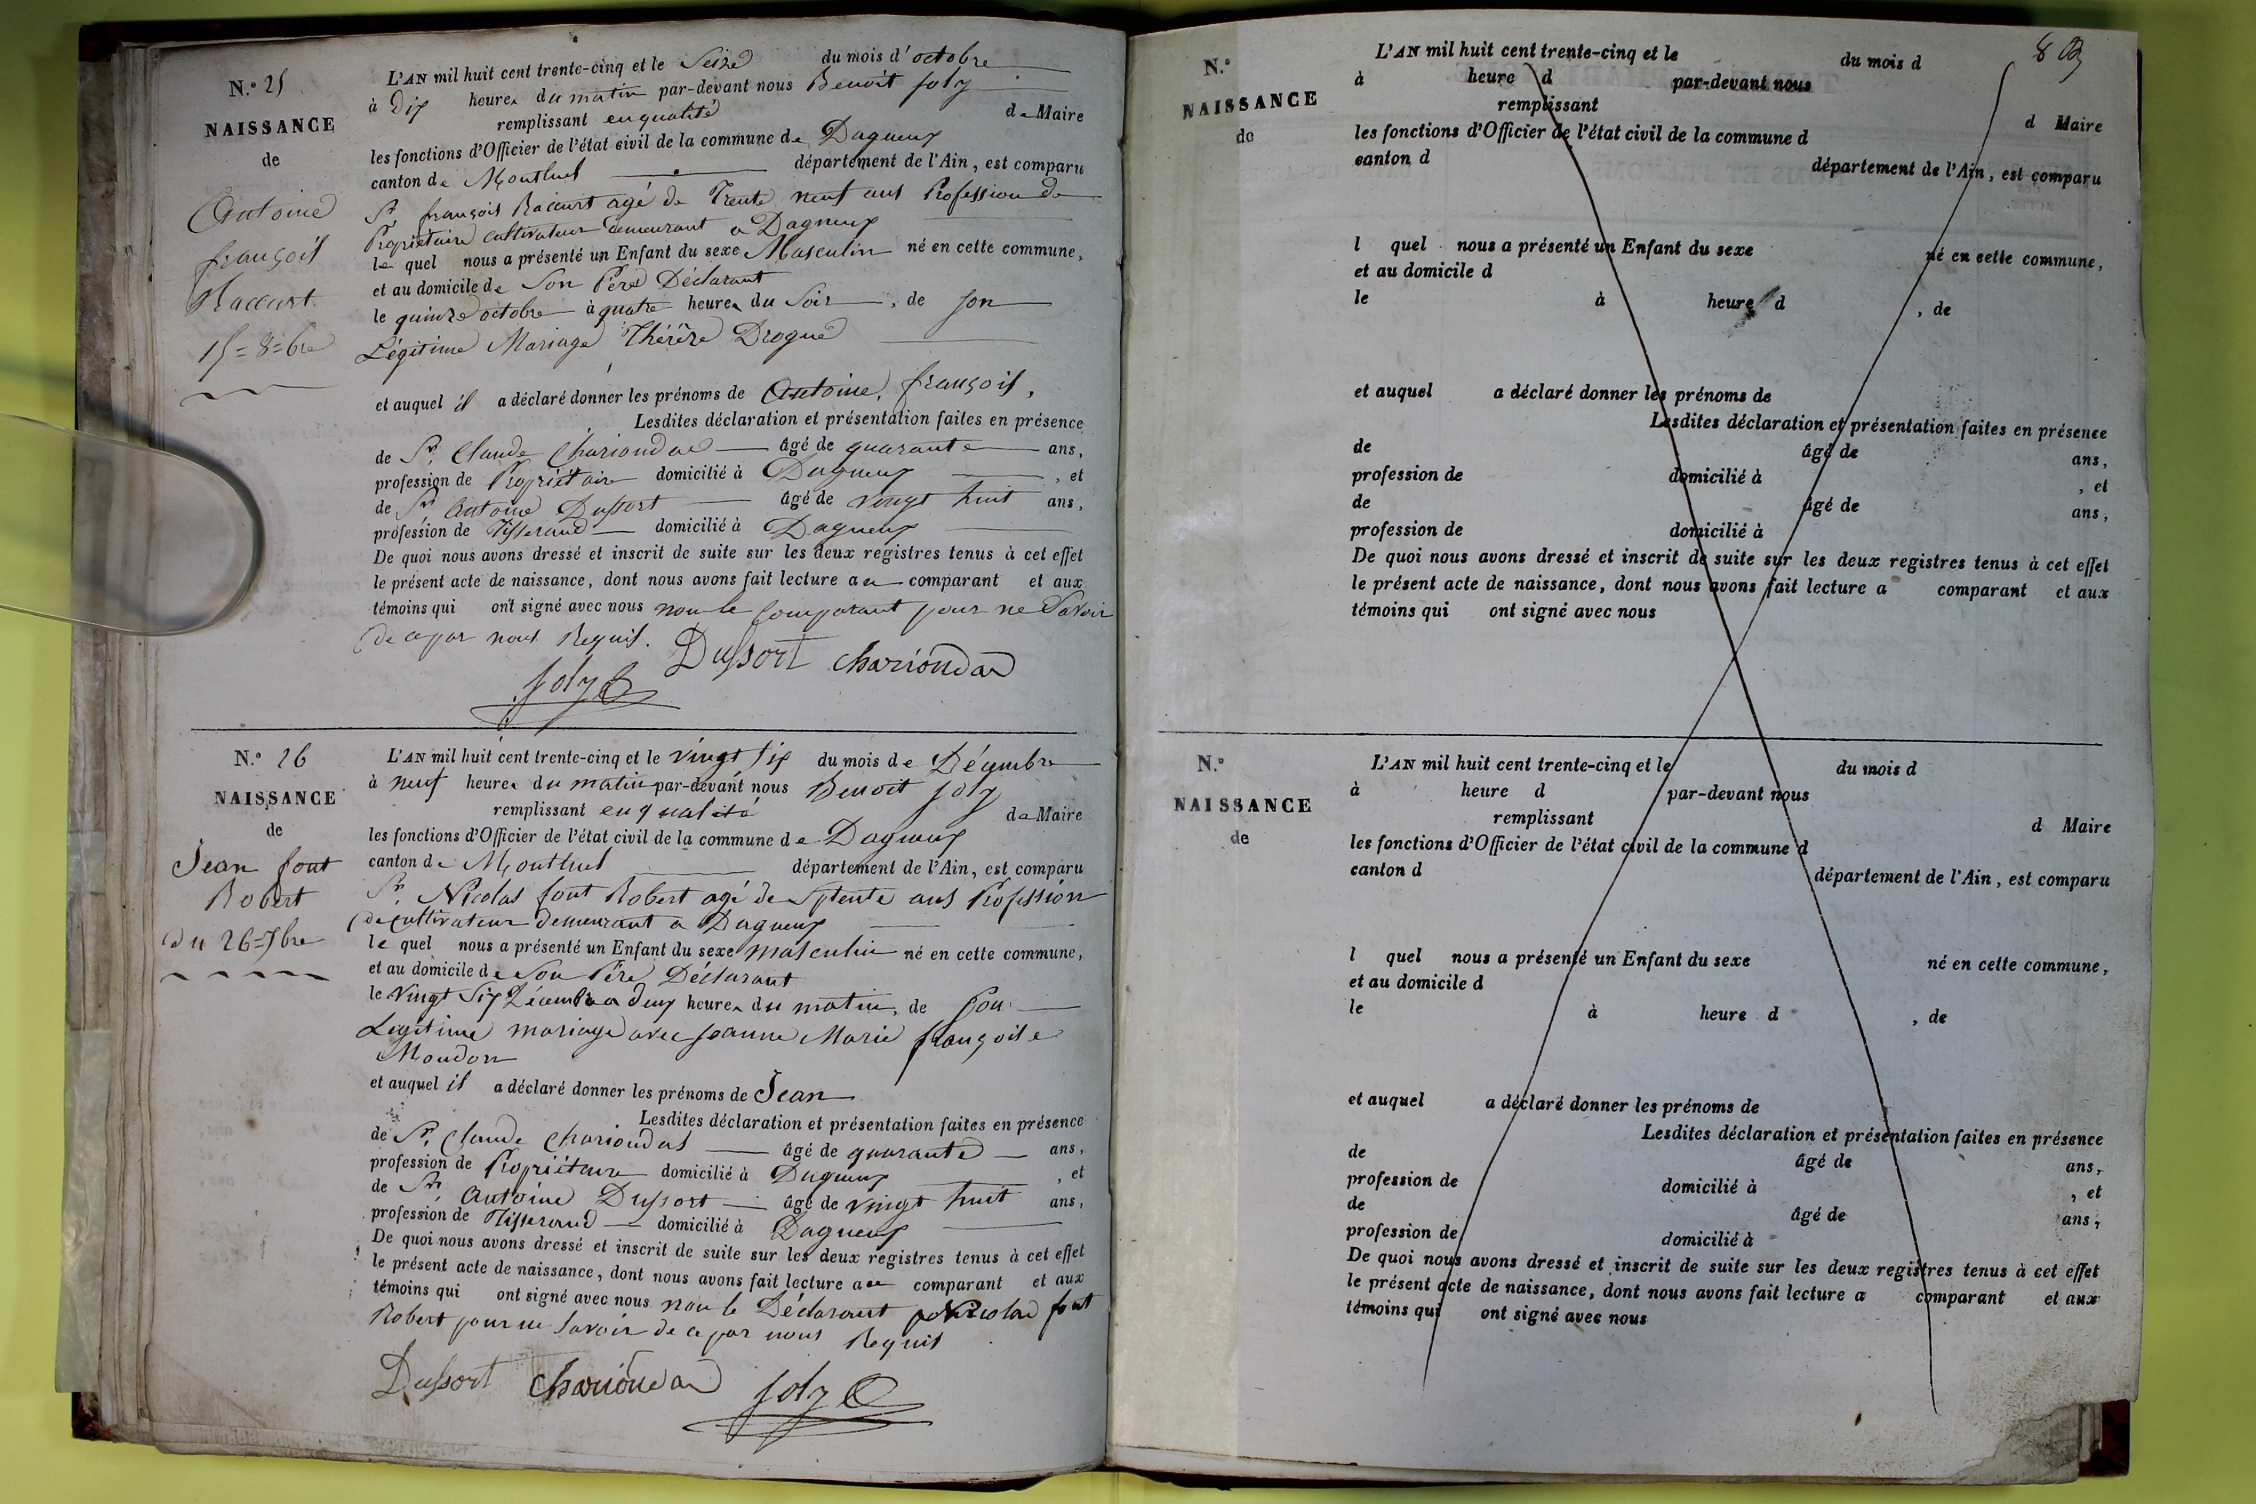 N.° 25
NAISSANCE
de
Antoine
françois
Raccurt
15 = 8=bre
L'AN mil huit cent trente-cinq et le Seize du mois d'octobre
à Dix heures du matin par-devant nous Benoit Joly
remplissant en qualité de Maire
les fonctions d'Officier de l'état civil de la commune de Dagneux
canton de Montluel département de l'Ain, est comparu
Sr. françois Raccurt agé de Trente neuf ans Profession de
Propriétaire cultivateur demeurant a Dagneux
le quel nous a présenté un Enfant du sexe Masculin né en cette commune,
et au domicile de Son Père Déclarant
le quinze octobre à quatre heures du Soir, de son
Légitime Mariage Thérèze Drogue
et auquel il a déclaré donner les prénoms de Antoine, françois,
Lesdites déclaration et présentation faites en présence
de Sr. Claude Chariondas âgé de quarante ans,
profession de Propriétaire domicilié à Dagneux, et
de Sr. Antoine Dussort âgé de vingt huit ans,
profession de Tisserand domicilié à Dagneux
De quoi nous avons dressé et inscrit de suite sur les deux registres tenus à cet effet
le présent acte de naissance, dont nous avons fait lecture au comparant et aux
témoins qui ont signé avec nous non le Comparant pour ne Savoir
de ce par nous Requis.
Dussort Chariondas
Joly
N.° 26
NAISSANCE
de
Jean font
Robert
du 26=Xbre
L'AN mil huit cent trente-cinq et le vingt six du mois de Décembre
à neuf heures du matin par-devant nous Benoit Joly
remplissant en qualité de Maire
les fonctions d'Officier de l'état civil de la commune de Dagneux
canton de Montluel département de l'Ain, est comparu
Sr. Nicolas font Robert agé de Septente ans Profession
de cultivateur demeurant a Dagneux
le quel nous a présenté un Enfant du sexe masculin né en cette commune,
et au domicile de Son Père Déclarant
le vingt Six Décembre a deux heures du matin, de Son
Légitime mariage avec Jeanne Marie françoise
Moudon
et auquel il a déclaré donner les prénoms de Jean
Lesdites déclaration et présentation faites en présence
de Sr. Claude Chariondas âgé de quarante ans,
profession de Propriétaire domicilié à Dagneux, et
de Sr. Antoine Dussort âgé de vingt huit ans,
profession de Tisserand domicilié à Dagneux
De quoi nous avons dressé et inscrit de suite sur les deux registres tenus à cet effet
le présent acte de naissance, dont nous avons fait lecture au comparant et aux
témoins qui ont signé avec nous non le Déclarant Nicolas font
Robert pour ne Savoir de ce par nous Requis
Dussort Chariondas Joly
8
N.°
NAISSANCE
de
L'AN mil huit cent trente-cinq et le du mois d
à heure d par-devant nous
remplissant d Maire
les fonctions d'Officier de l'état civil de la commune d
canton d département de l'Ain, est comparu
l quel nous a présenté un Enfant du sexe né en cette commune,
et au domicile d
le à heure d , de
et auquel a déclaré donner les prénoms de
Lesdites déclaration et présentation faites en présence
de âgé de ans,
profession de domicilié à , et
de âgé de ans,
profession de domicilié à
De quoi nous avons dressé et inscrit de suite sur les deux registres tenus à cet effet
le présent acte de naissance, dont nous avons fait lecture a comparant et aux
témoins qui ont signé avec nous
N.°
NAISSANCE
de
L'AN mil huit cent trente-cinq et le du mois d
à heure d par-devant nous
remplissant d Maire
les fonctions d'Officier de l'état civil de la commune d
canton d département de l'Ain, est comparu
l quel nous a présenté un Enfant du sexe né en cette commune,
et au domicile d
le à heure d , de
et auquel a déclaré donner les prénoms de
Lesdites déclaration et présentation faites en présence
de âgé de ans,
profession de domicilié à , et
de âgé de ans,
profession de domicilié à
De quoi nous avons dressé et inscrit de suite sur les deux registres tenus à cet effet
le présent acte de naissance, dont nous avons fait lecture a comparant et aux
témoins qui ont signé avec nous